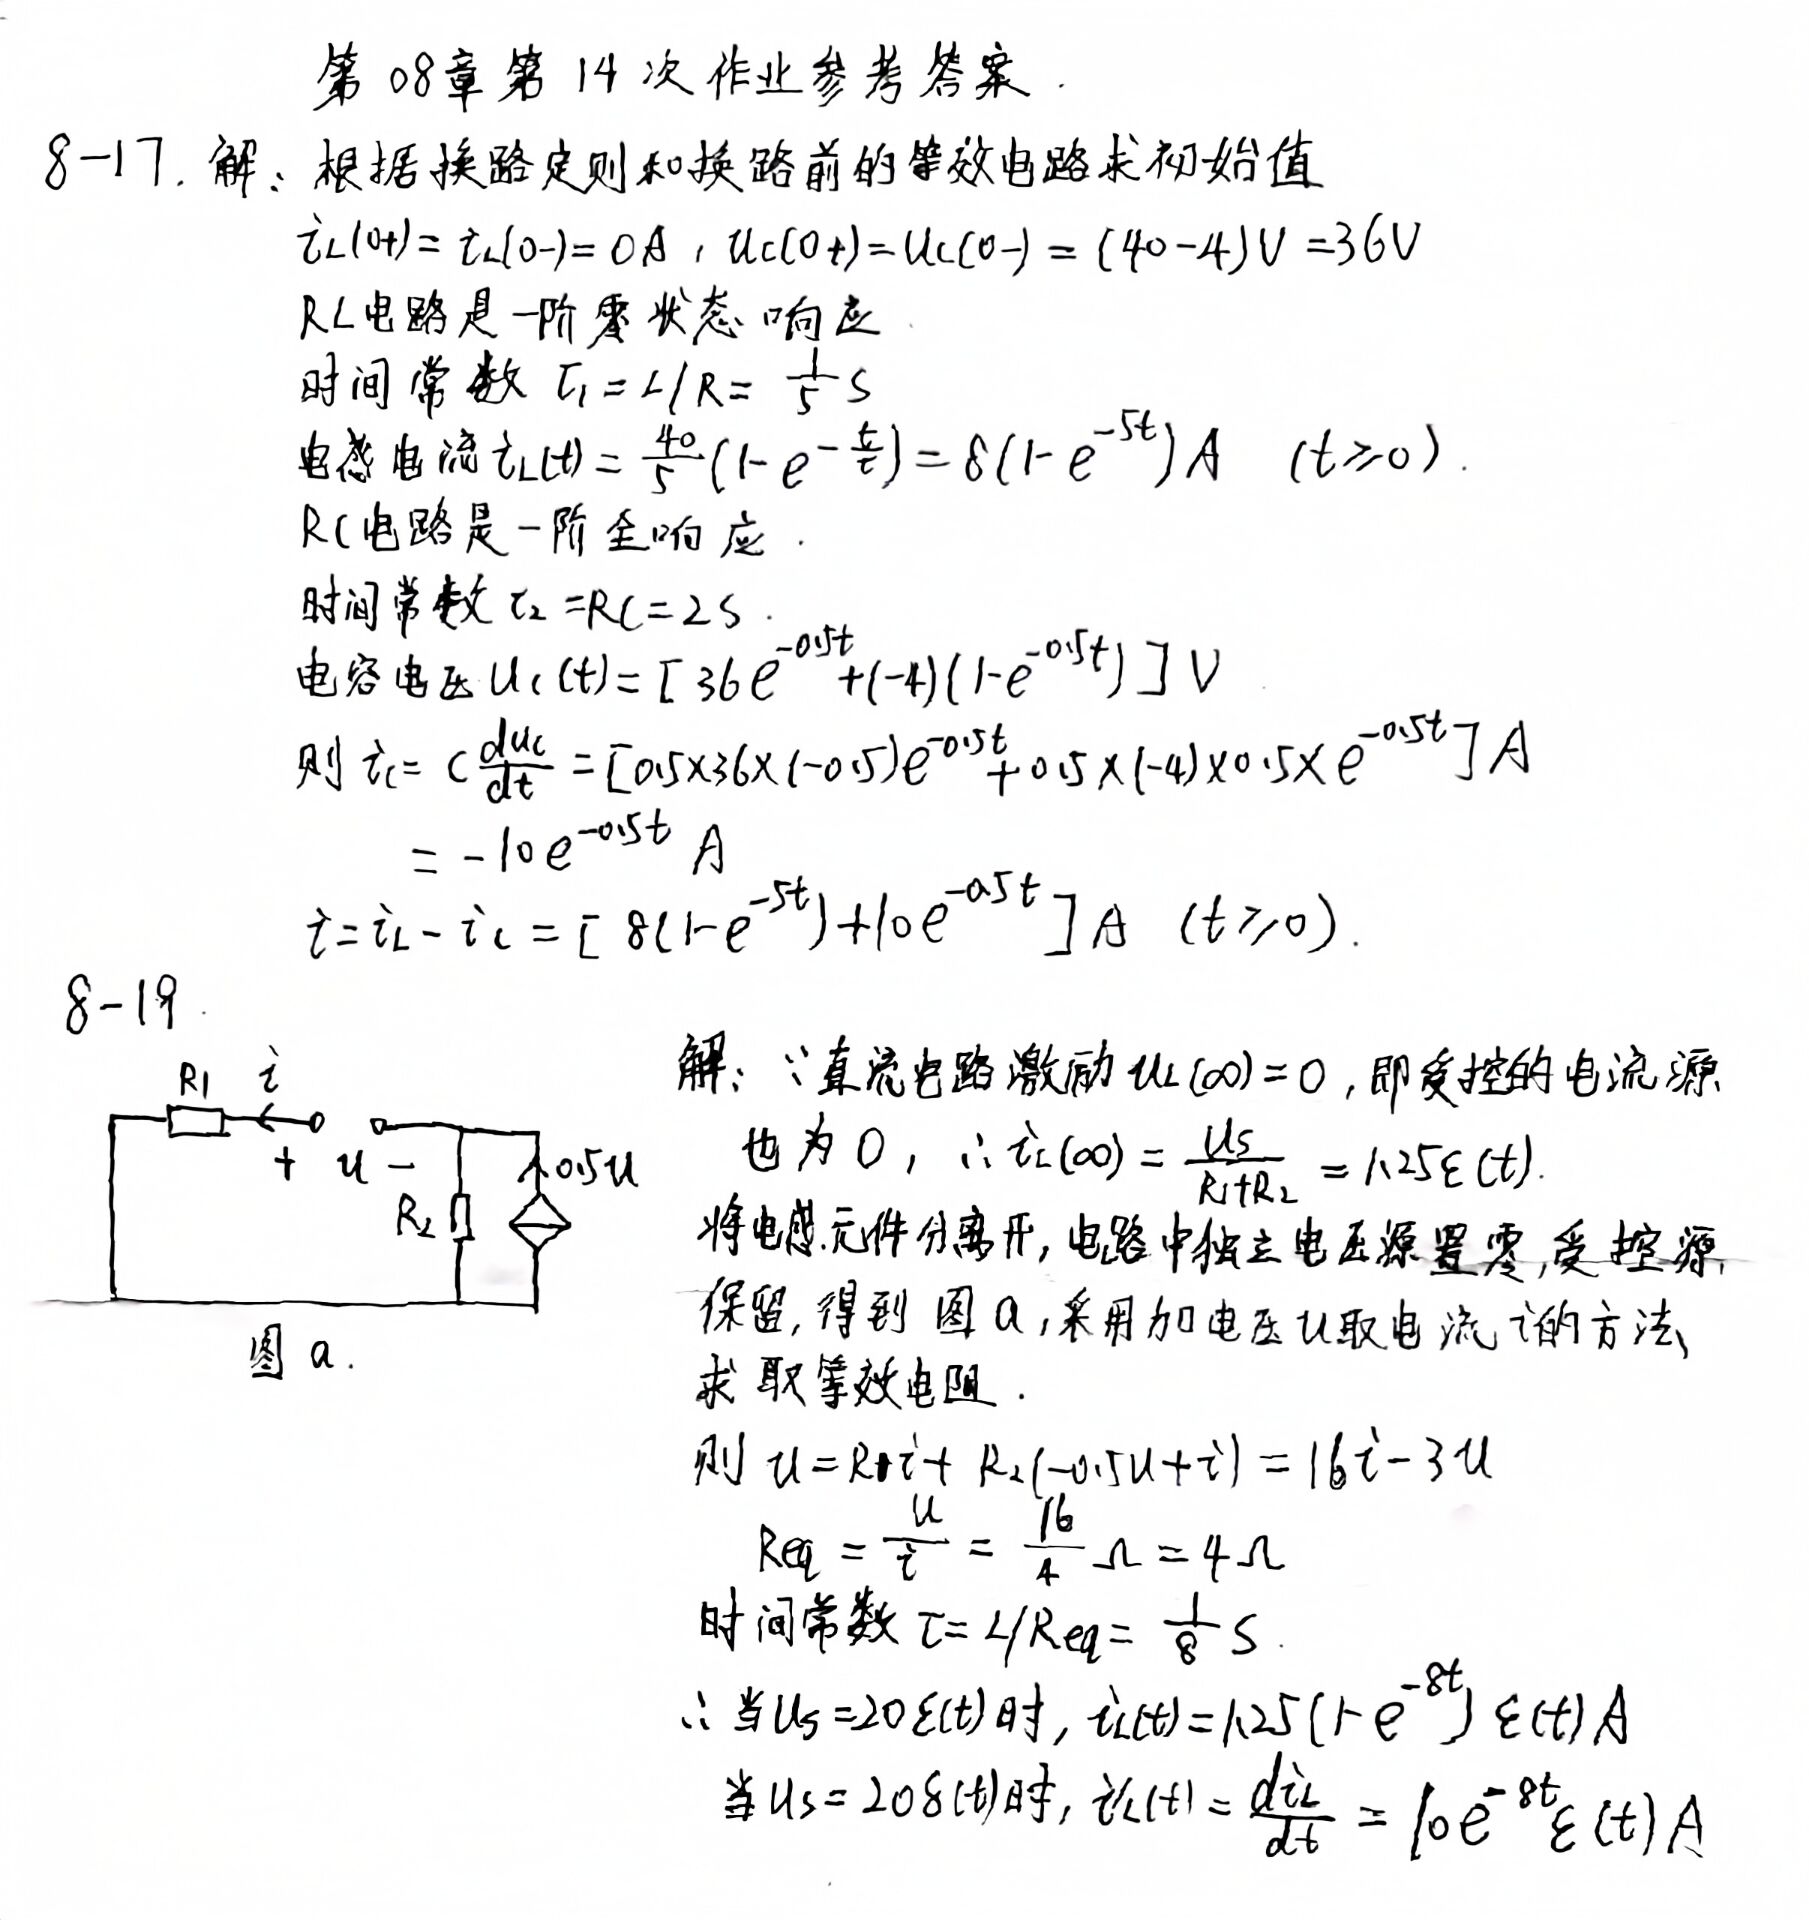 第08章第14次作业参考答案.
8-17. 解: 根据换路定则和换路前的等效电路求初始值
iL(0+)=iL(0-)=0A, uC(0+)=uC(0-)=(40-4)V=36V
RL电路是一阶零状态响应
时间常数 τ1=L/R=1/5 S
电感电流iL(t)=40/5(1-e^(-t/τ))=8(1-e^(-5t))A (t≥0).
RC电路是一阶全响应.
时间常数τ2=RC=2S.
电容电压uC(t)=[36e^(-0.5t)+(-4)(1-e^(-0.5t))]V
则 iC=C duC/dt=[0.5×36×(-0.5)e^(-0.5t)+0.5×(-4)×0.5×e^(-0.5t)]A
=-10e^(-0.5t) A
i=iL-iC=[8(1-e^(-5t))+10e^(-0.5t)]A (t≥0).
8-19.
R1 i
+ u -
0.5u
R2
图a.
解: ∵直流电路激励uL(∞)=0,即受控的电流源
也为0, ∴iL(∞)=us/(R1+R2)=1.25ε(t).
将电感元件分离开,电路中独立电压源置零,受控源
保留,得到图a,采用加电压u取电流i的方法
求取等效电阻.
则 u=R1i+R2(-0.5u+i)=16i-3u
Req=u/i=16/4 Ω=4Ω
时间常数τ=L/Req=1/8 S.
∴当us=20ε(t)时, iL(t)=1.25(1-e^(-8t))ε(t)A
当us=20δ(t)时, iL(t)=diL/dt=10e^(-8t)ε(t)A